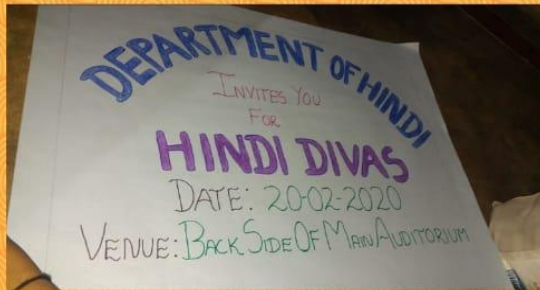 DEPARTMENT OF HINDI
INVITES YOU
FOR
HINDI DIVAS
DATE: 20-02-2020
VENUE: BACK SIDE OF MAIN AUDITORIUM